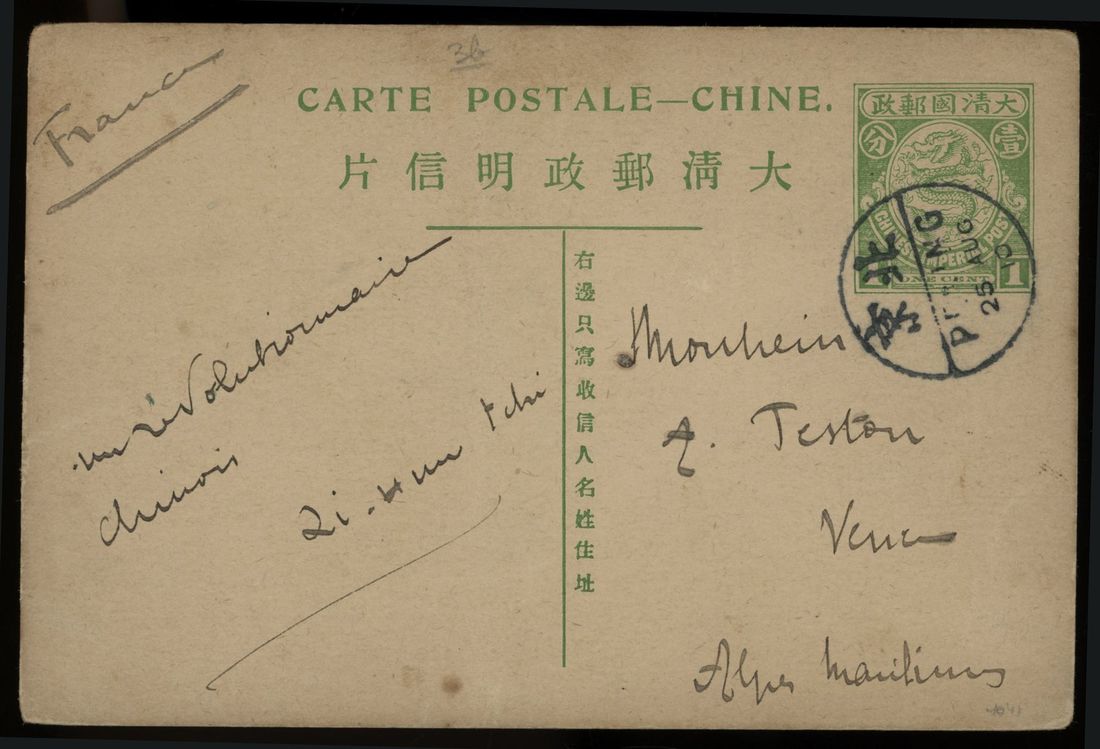 France
3b
CARTE POSTALE—CHINE.
片信明政郵淸大
政郵國清大
分 壹
CHINESE IMPERIAL POST
1 ONE CENT 1
北京
PEKING
25 AUG 10
右邊只寫收信人名姓住址
un révolutionnaire
chinois
Monhein
A. Teston
Vence
Alpes Maritimes